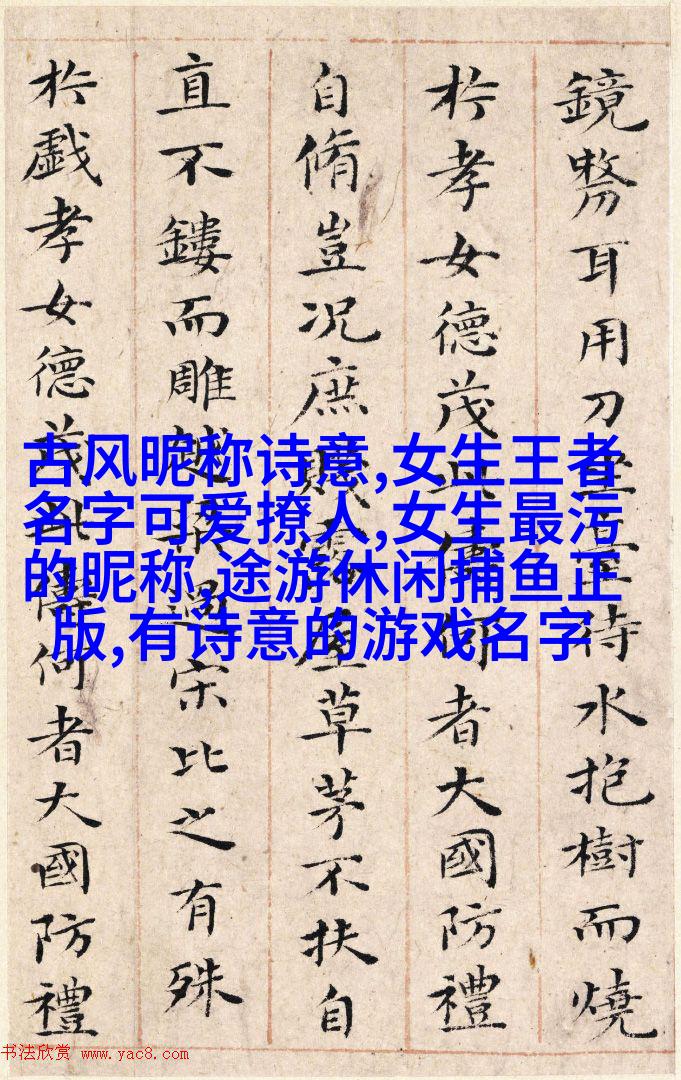 鏡剺耳用刀坐臺待水抱樹而燒
於孝女德茂此儔何者大國防禮
自脩豈況庶賤露屋草茅不扶自
直不鏤而雕越梁過宋比之有殊
於戲孝女德茂此儔何者大國防禮
古风昵称诗意,女生王者
名字可爱撩人,女生最污
的昵称,途游休闲捕鱼正
版,有诗意的游戏名字
书法欣赏 www.yac8.com